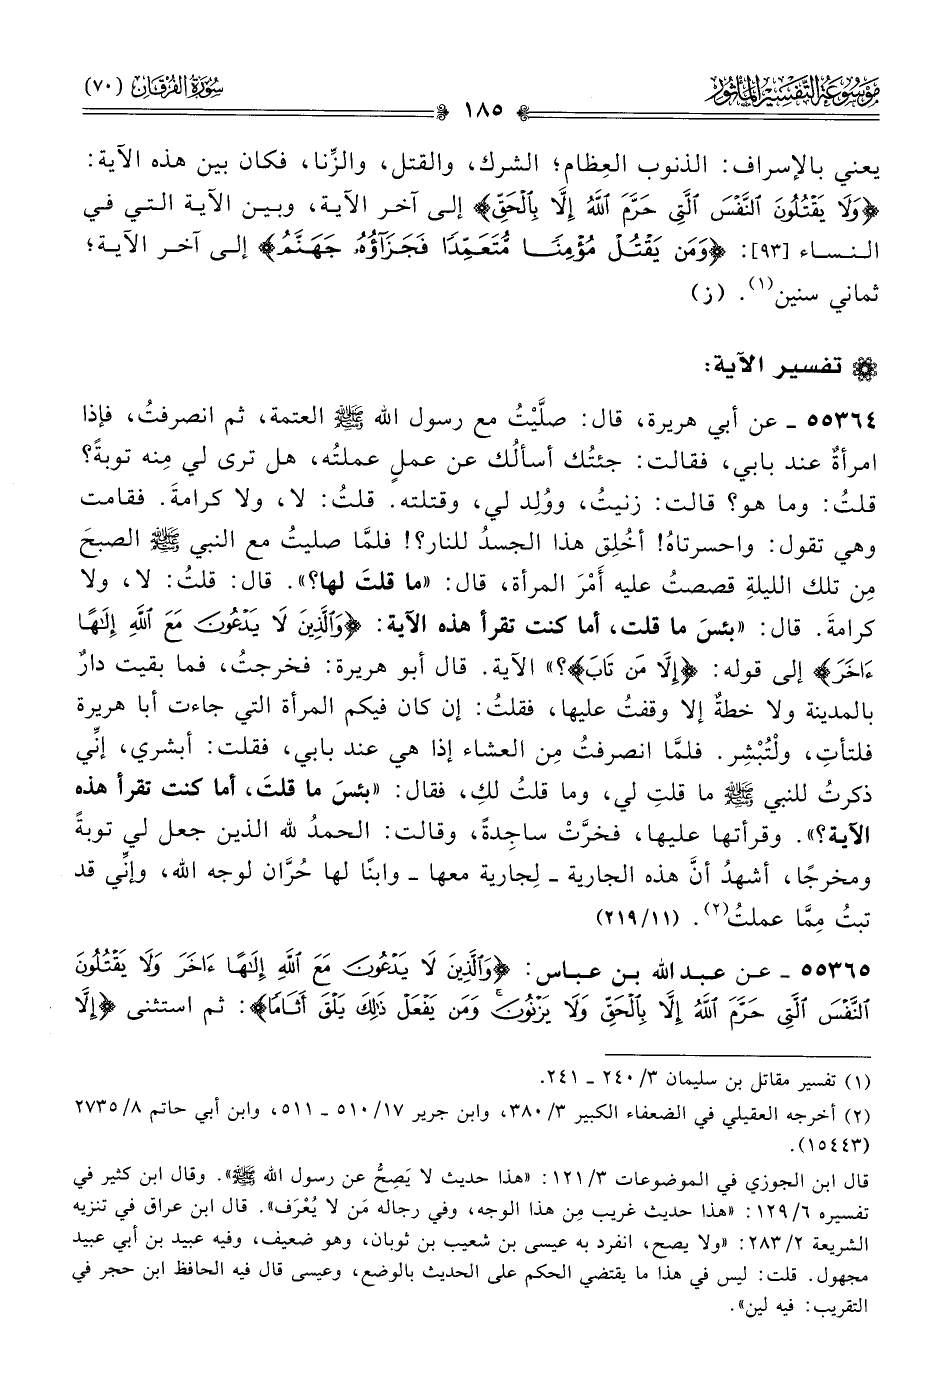 موسوعة التفسير المأثور
سورة الفرقان (٧٠)
١٨٥
يعني بالإسراف: الذنوب العِظام؛ الشرك، والقتل، والزِّنا، فكان بين هذه الآية:
﴿وَلَا يَقْتُلُونَ ٱلنَّفْسَ ٱلَّتِي حَرَّمَ ٱللَّهُ إِلَّا بِٱلْحَقِّ﴾ إلى آخر الآية، وبين الآية التي في
النساء [٩٣]: ﴿وَمَن يَقْتُلْ مُؤْمِنًا مُّتَعَمِّدًا فَجَزَآؤُهُۥ جَهَنَّمُ﴾ إلى آخر الآية؛
ثماني سنين(١). (ز)
تفسير الآية:
٥٥٣٦٤ ـ عن أبي هريرة، قال: صلَّيْتُ مع رسول الله ﷺ العتمة، ثم انصرفتُ، فإذا
امرأةٌ عند بابي، فقالت: جئتُك أسألُك عن عملٍ عملتُه، هل ترى لي مِنه توبةً؟
قلتُ: وما هو؟ قالت: زنيتُ، ووُلِد لي، وقتلته. قلتُ: لا، ولا كرامةَ. فقامت
وهي تقول: واحسرتاهُ! أخُلِق هذا الجسدُ للنار؟! فلمَّا صليتُ مع النبي ﷺ الصبحَ
مِن تلك الليلةِ قصصتُ عليه أمْرَ المرأة، قال: «ما قلتَ لها؟». قال: قلتُ: لا، ولا
كرامةَ. قال: «بئسَ ما قلت، أما كنت تقرأ هذه الآية: ﴿وَٱلَّذِينَ لَا يَدْعُونَ مَعَ ٱللَّهِ إِلَٰهًا
ءَاخَرَ﴾ إلى قوله: ﴿إِلَّا مَن تَابَ﴾؟» الآية. قال أبو هريرة: فخرجتُ، فما بقيت دارٌ
بالمدينة ولا خطةٌ إلا وقفتُ عليها، فقلتُ: إن كان فيكم المرأة التي جاءت أبا هريرة
فلتأتِ، ولْتُبْشِر. فلمَّا انصرفتُ مِن العشاء إذا هي عند بابي، فقلت: أبشري، إنِّي
ذكرتُ للنبي ﷺ ما قلتِ لي، وما قلتُ لكِ، فقال: «بئسَ ما قلتَ، أما كنت تقرأ هذه
الآية؟». وقرأتها عليها، فخرَّتْ ساجدةً، وقالت: الحمدُ لله الذين جعل لي توبةً
ومخرجًا، أشهدُ أنَّ هذه الجارية ـ لِجارية معها ـ وابنًا لها حُرَّان لوجه الله، وإنِّي قد
تبتُ مِمَّا عملتُ(٢). (٢١٩/١١)
٥٥٣٦٥ ـ عن عبد الله بن عباس: ﴿وَٱلَّذِينَ لَا يَدْعُونَ مَعَ ٱللَّهِ إِلَٰهًا ءَاخَرَ وَلَا يَقْتُلُونَ
ٱلنَّفْسَ ٱلَّتِي حَرَّمَ ٱللَّهُ إِلَّا بِٱلْحَقِّ وَلَا يَزْنُونَ ۚ وَمَن يَفْعَلْ ذَٰلِكَ يَلْقَ أَثَامًا﴾: ثم استثنى ﴿إِلَّا
(١) تفسير مقاتل بن سليمان ٢٤٠/٣ ـ ٢٤١.
(٢) أخرجه العقيلي في الضعفاء الكبير ٣٨٠/٣، وابن جرير ٥١٠/١٧ ـ ٥١١، وابن أبي حاتم ٢٧٣٥/٨
(١٥٤٤٣).
قال ابن الجوزي في الموضوعات ١٢١/٣: «هذا حديث لا يَصِحُّ عن رسول الله ﷺ». وقال ابن كثير في
تفسيره ١٢٩/٦: «هذا حديث غريب مِن هذا الوجه، وفي رجاله مَن لا يُعْرَف». قال ابن عراق في تنزيه
الشريعة ٢٨٣/٢: «ولا يصح، انفرد به عيسى بن شعيب بن ثوبان، وهو ضعيف، وفيه عبيد بن أبي عبيد
مجهول. قلت: ليس في هذا ما يقتضي الحكم على الحديث بالوضع، وعيسى قال فيه الحافظ ابن حجر في
التقريب: فيه لين».